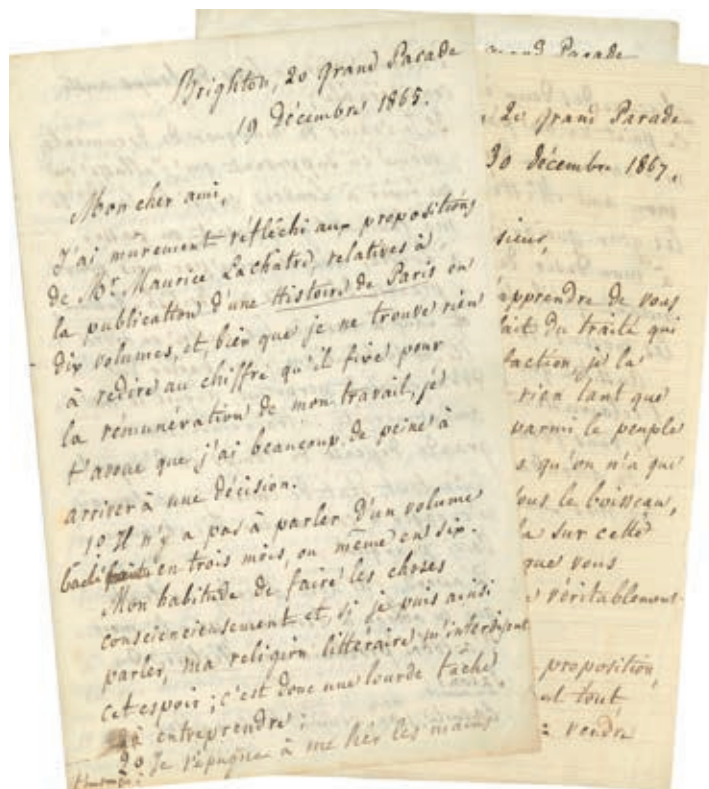 Brighton, 20 Grand Parade
19 Décembre 1865.
Mon cher ami,
J'ai murement réfléchi aux propositions
de Mr. Maurice Lachatre, relatives à
la publication d'une Histoire de Paris en
dix volumes, et, bien que je ne trouve rien
à redire au chiffre qu'il fixe pour
la rémunération de mon travail, je
t'avoue que j'ai beaucoup de peine à
arriver à une décision.
1o Il n'y a pas à parler d'un volume
en trois mois, ou même en six.
Mon habitude de faire les choses
consciencieusement et, si je puis ainsi
parler, ma religion littéraire m'interdisent
cet espoir ; c'est donc une lourde tâche
à entreprendre :
2o Je répugne à me lier les mains
Grand Parade
20 Grand Parade
30 décembre 1867.
sieur,
apprendre de vous
fait du traité qui
faction, je la
rien tant que
parmi le peuple
s qu'on n'a que
sous le boisseau,
la sur cette
que vous
véritablement
proposition,
tout
vendre